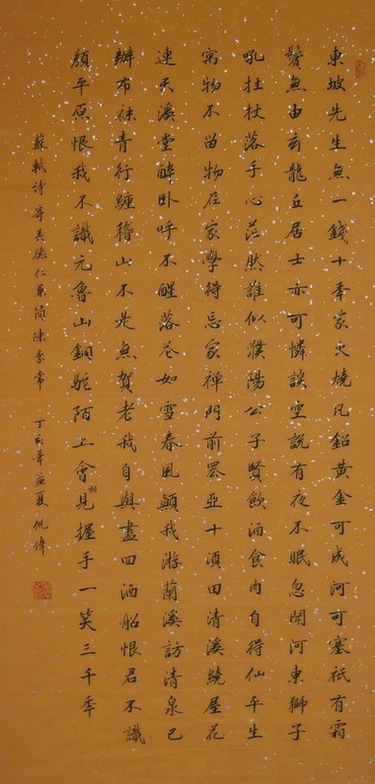 東坡先生無一錢十秊家火燒凡鉛黃金可成河可塞祇有霜
鬢無由玄龍丘居士亦可憐談空說有夜不眠忽聞河東獅子
吼拄杖落手心茫然誰似濮陽公子賢飲酒食肉自得仙平生
寓物不留物在家學得忘家禪門前罷亞十頃田清溪繞屋花
連天溪堂醉臥呼不醒落花如雪春風顛我游蘭溪訪清泉已
辦布袜青行纏稽山不是無賀老我自興盡回酒船恨君不識
顏平原恨我不識元魯山銅駝陌上會相見握手一笑三千秊
蘇軾詩寄吳德仁兼簡陳季常 丁亥年孟夏帆偉